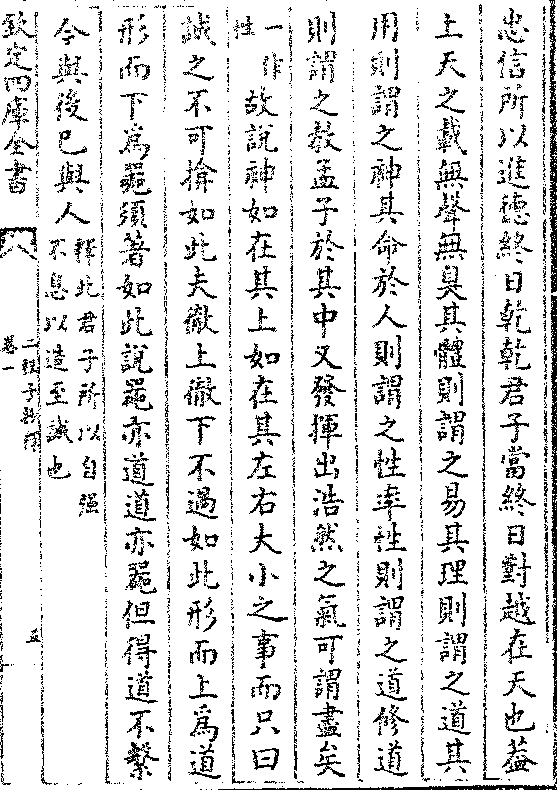 忠信所以進德終日乾乾君子當終日對越在天也葢
上天之載無聲無臭其體則謂之易其理則謂之道其
用則謂之神其命於人則謂之性率性則謂之道修道
則謂之教孟子於其中又發揮出浩然之氣可謂盡矣
一作性故說神如在其上如在其左右大小之事而只曰
誠之不可揜如此夫徹上徹下不過如此形而上為道
形而下為噐須著如此說噐亦道道亦噐但得道不繫
今與後已與人釋此君子所以自强不息以造至誠也
欽定四庫全書
卷一
二程子抄釋
五